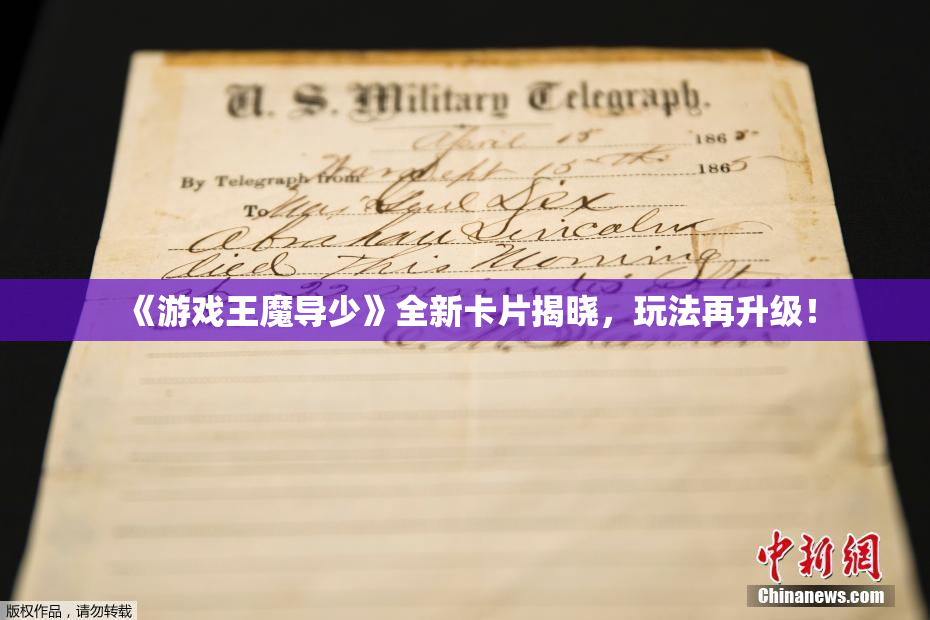 U. S. Military Telegraph.
April 15 1865
By Telegraph from War Dept 15th 1865
To Maj Genl Dix
Abraham Lincoln
died This Morning
at 22 minutes after
《游戏王魔导少》全新卡片揭晓，玩法再升级！
E. M. Stanton
中新网
Chinanews.com
版权作品，请勿转载